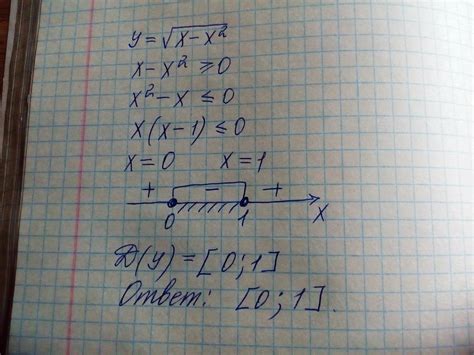 y = √(x - x²)
x - x² ≥ 0
x² - x ≤ 0
x(x - 1) ≤ 0
x = 0 x = 1
+ - +
0 1 x
D(y) = [0; 1]
Ответ: [0; 1].